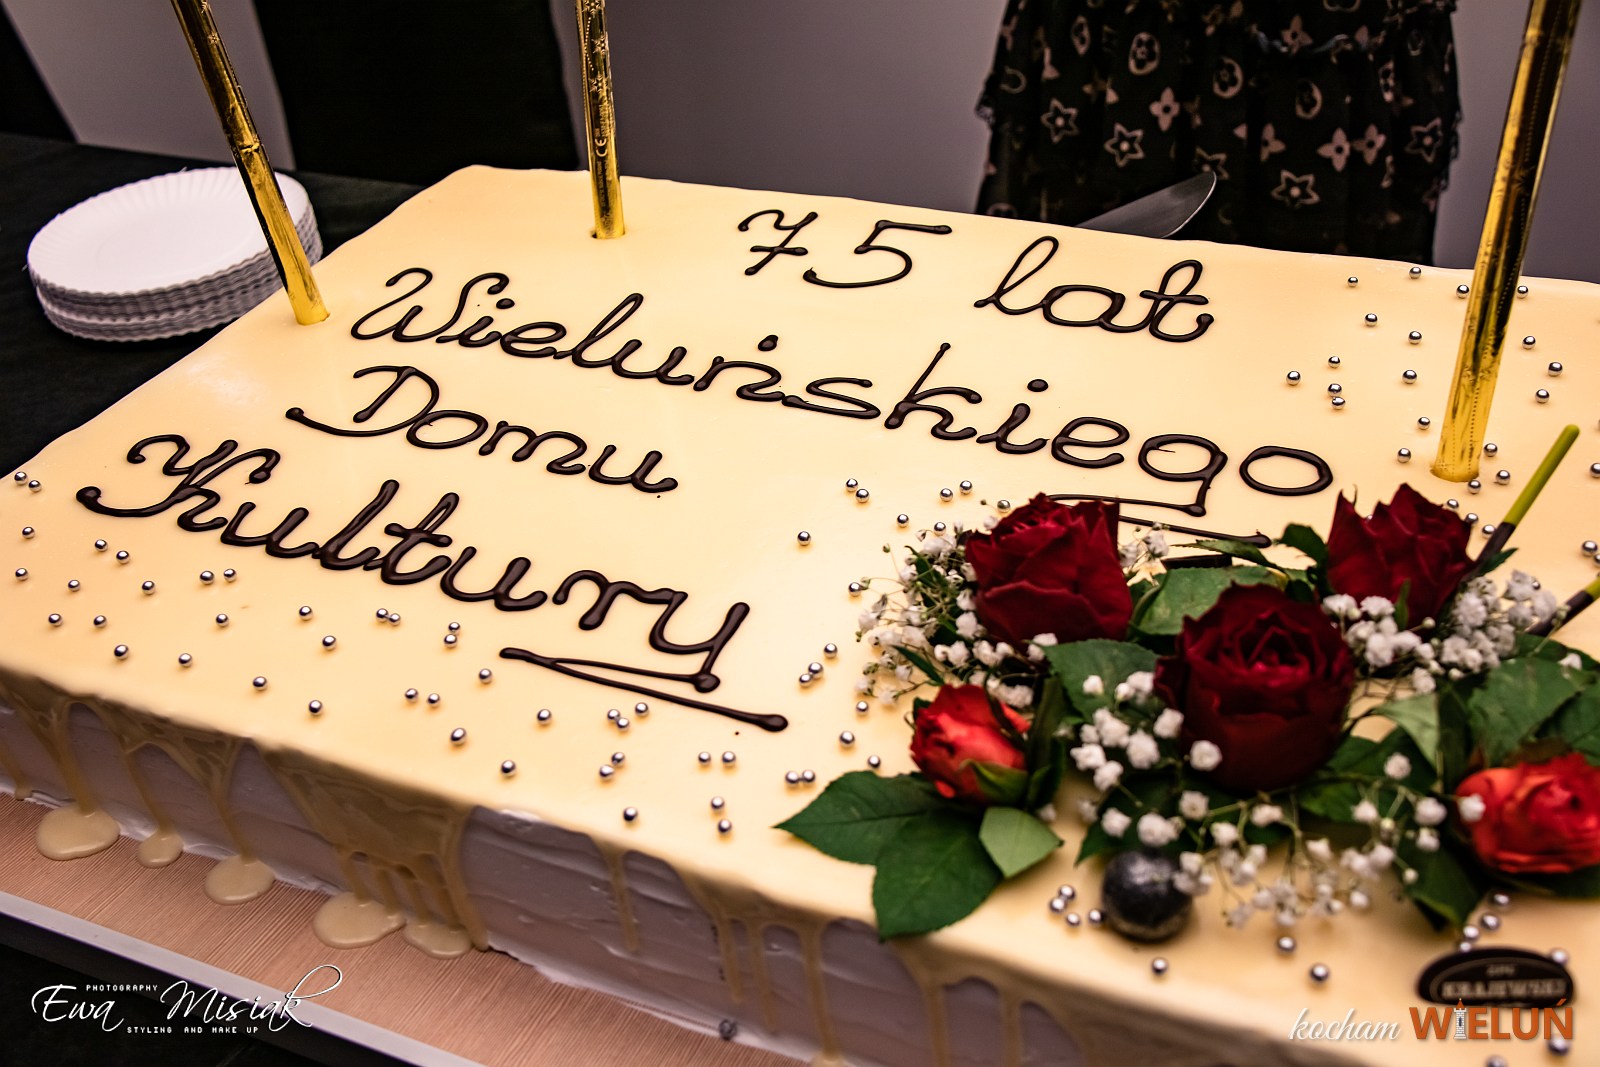 75 lat
Wieluńskiego
Domu
Kultury
KRAJEWSKI
PHOTOGRAPHY
Ewa Misiak
STYLING AND MAKE UP
kocham WIELUŃ